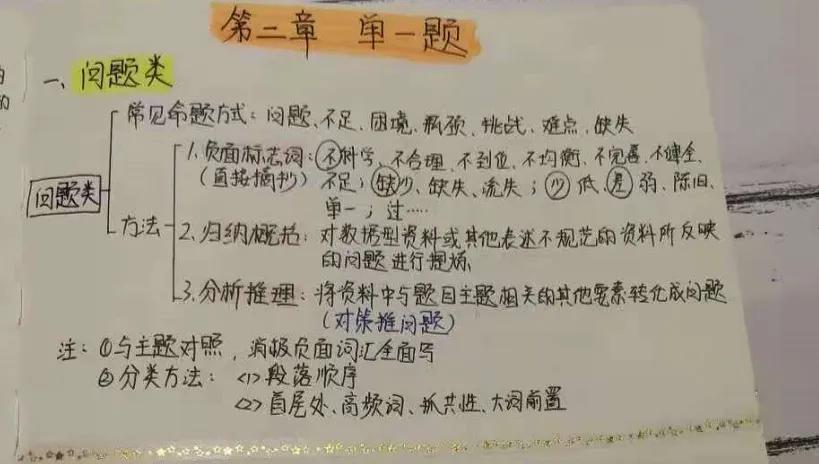 第二章 单一题
一、问题类
常见命题方式：问题、不足、困境、瓶颈、挑战、难点、缺失
1.负面标志词：不科学、不合理、不到位、不均衡、不完善、不健全、
（直接摘抄）不足；缺少、缺失、流失；少、低、差、弱、陈旧、
单一；过……
问题类
方法
2.归纳概括：对数据型资料或其他表述不规范的资料所反映
的问题进行提炼
3.分析推理：将资料中与题目主题相关的其他要素转化成问题
（对策推问题）
注：①与主题对照，消极负面词汇全面写
②分类方法：<1>段落顺序
<2>首尾处、高频词、抓共性、大词前置